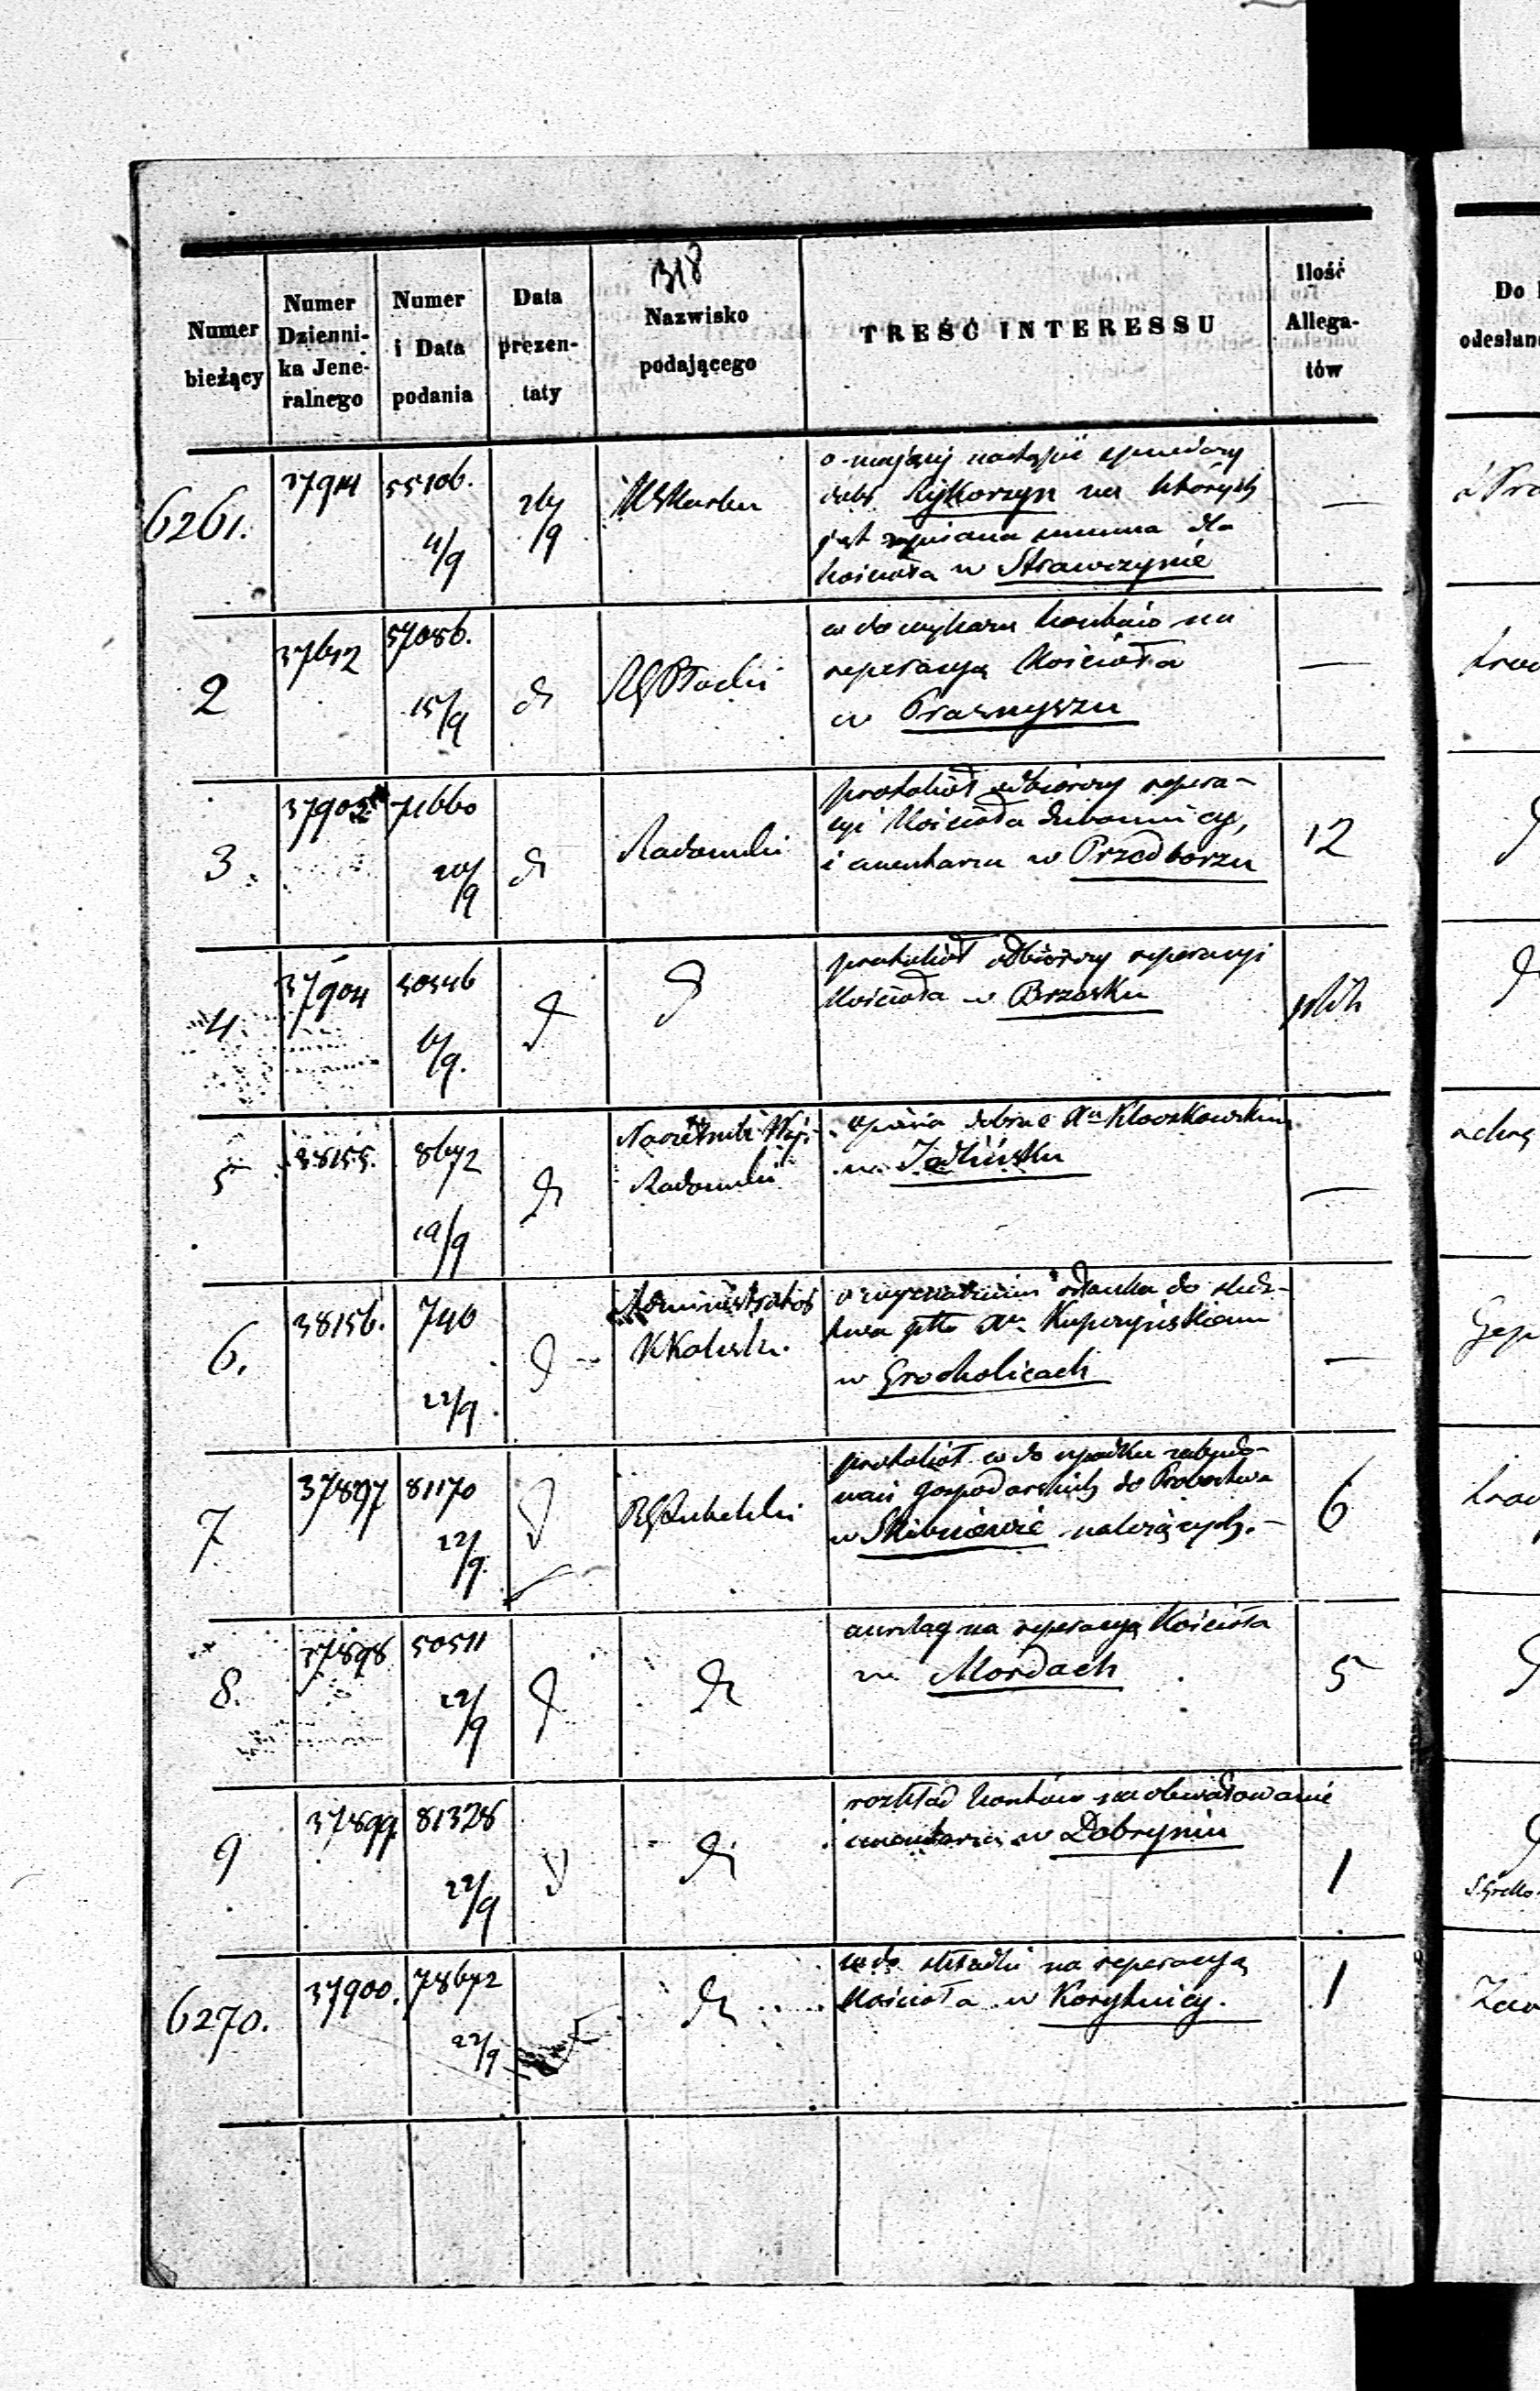 318
Numer bieżący | Numer Dzienni-ka Jene-ralnego | Numer i Data podania | Data prezen-taty | Nazwisko podającego | TREŚĆ INTERESSU | Ilość Allega-tów
6261. 37914 55106. 11/9 26/9
o mającej nastąpić sprzedaży
dóbr Rykorzyn na których
jest zapisana summa dla
kościoła w Strawczynie
—
2 37642 57086. 15/9 dt RGPłocki
co do wykazu kosztów na
reperacyą Kościoła
w Prasnyszu
—
3. 37902 71660 20/9 dt Radomski
protokół odbiorczy repera-
cyi Kościoła dzwonnicy,
i cmentarza w Przedborzu
12
4. 37904 50546 dt dt
protokół odbiorczy reperacyi
Kościoła w Brzesku
plik
5 38155. 8672 19/9 dt
Naczelnik Woj:
Radomski
opinia dobra Xu Kloczkowskim
w Jedlińsku
—
6. 38156. 740 22/9. dt
Administrator
KKalisk.
do
Xu Kupczyńskiemu
w Grocholicach
—
7 37897 81170 22/9. dt RGLubelski
protokół co do upadku zabudo-
wań gospodarskich do Probostwa
w Skibniewie należących.—
6
8. 37898 50511 22/9 dt dt
anszlag na reperacyą Kościoła
w Mordach
5
9 37899 81328 22/9 dt dt
rozkład kosztów na obwałowanie
cmentarza w Dobryniu
1
6270. 37900. 78672 22/9 dt
co do składki na reperacyą
Kościoła w Korytnicy.
1
Do
odesłan